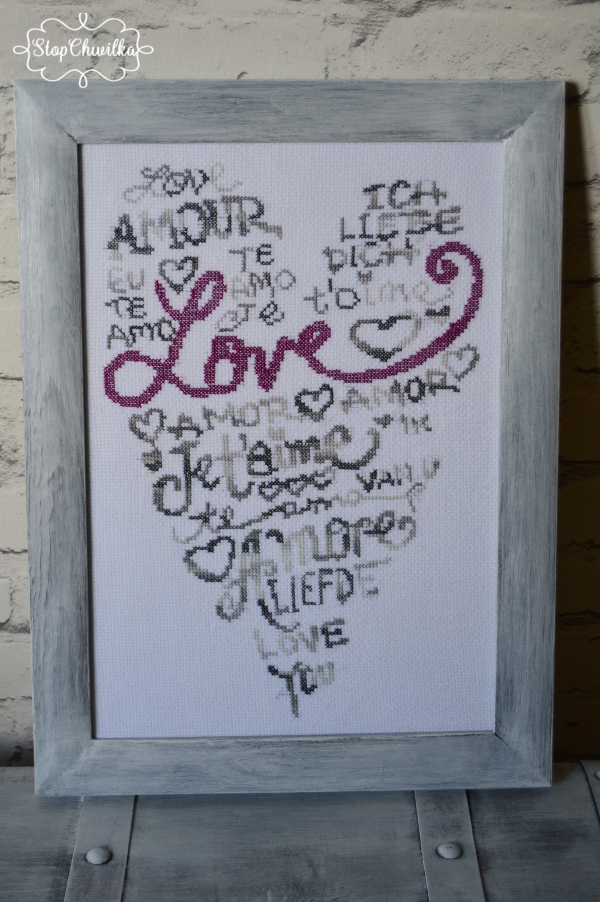 StopChwilka
Love
AMOUR
ICH
LIEBE
DICH
EU
TE
AMO
TE
AMO
Je
t'aime
Love
AMOR AMOR
Je t'aime
ooo van u
te amo
Amore
LIEFDE
LOVE
YOU